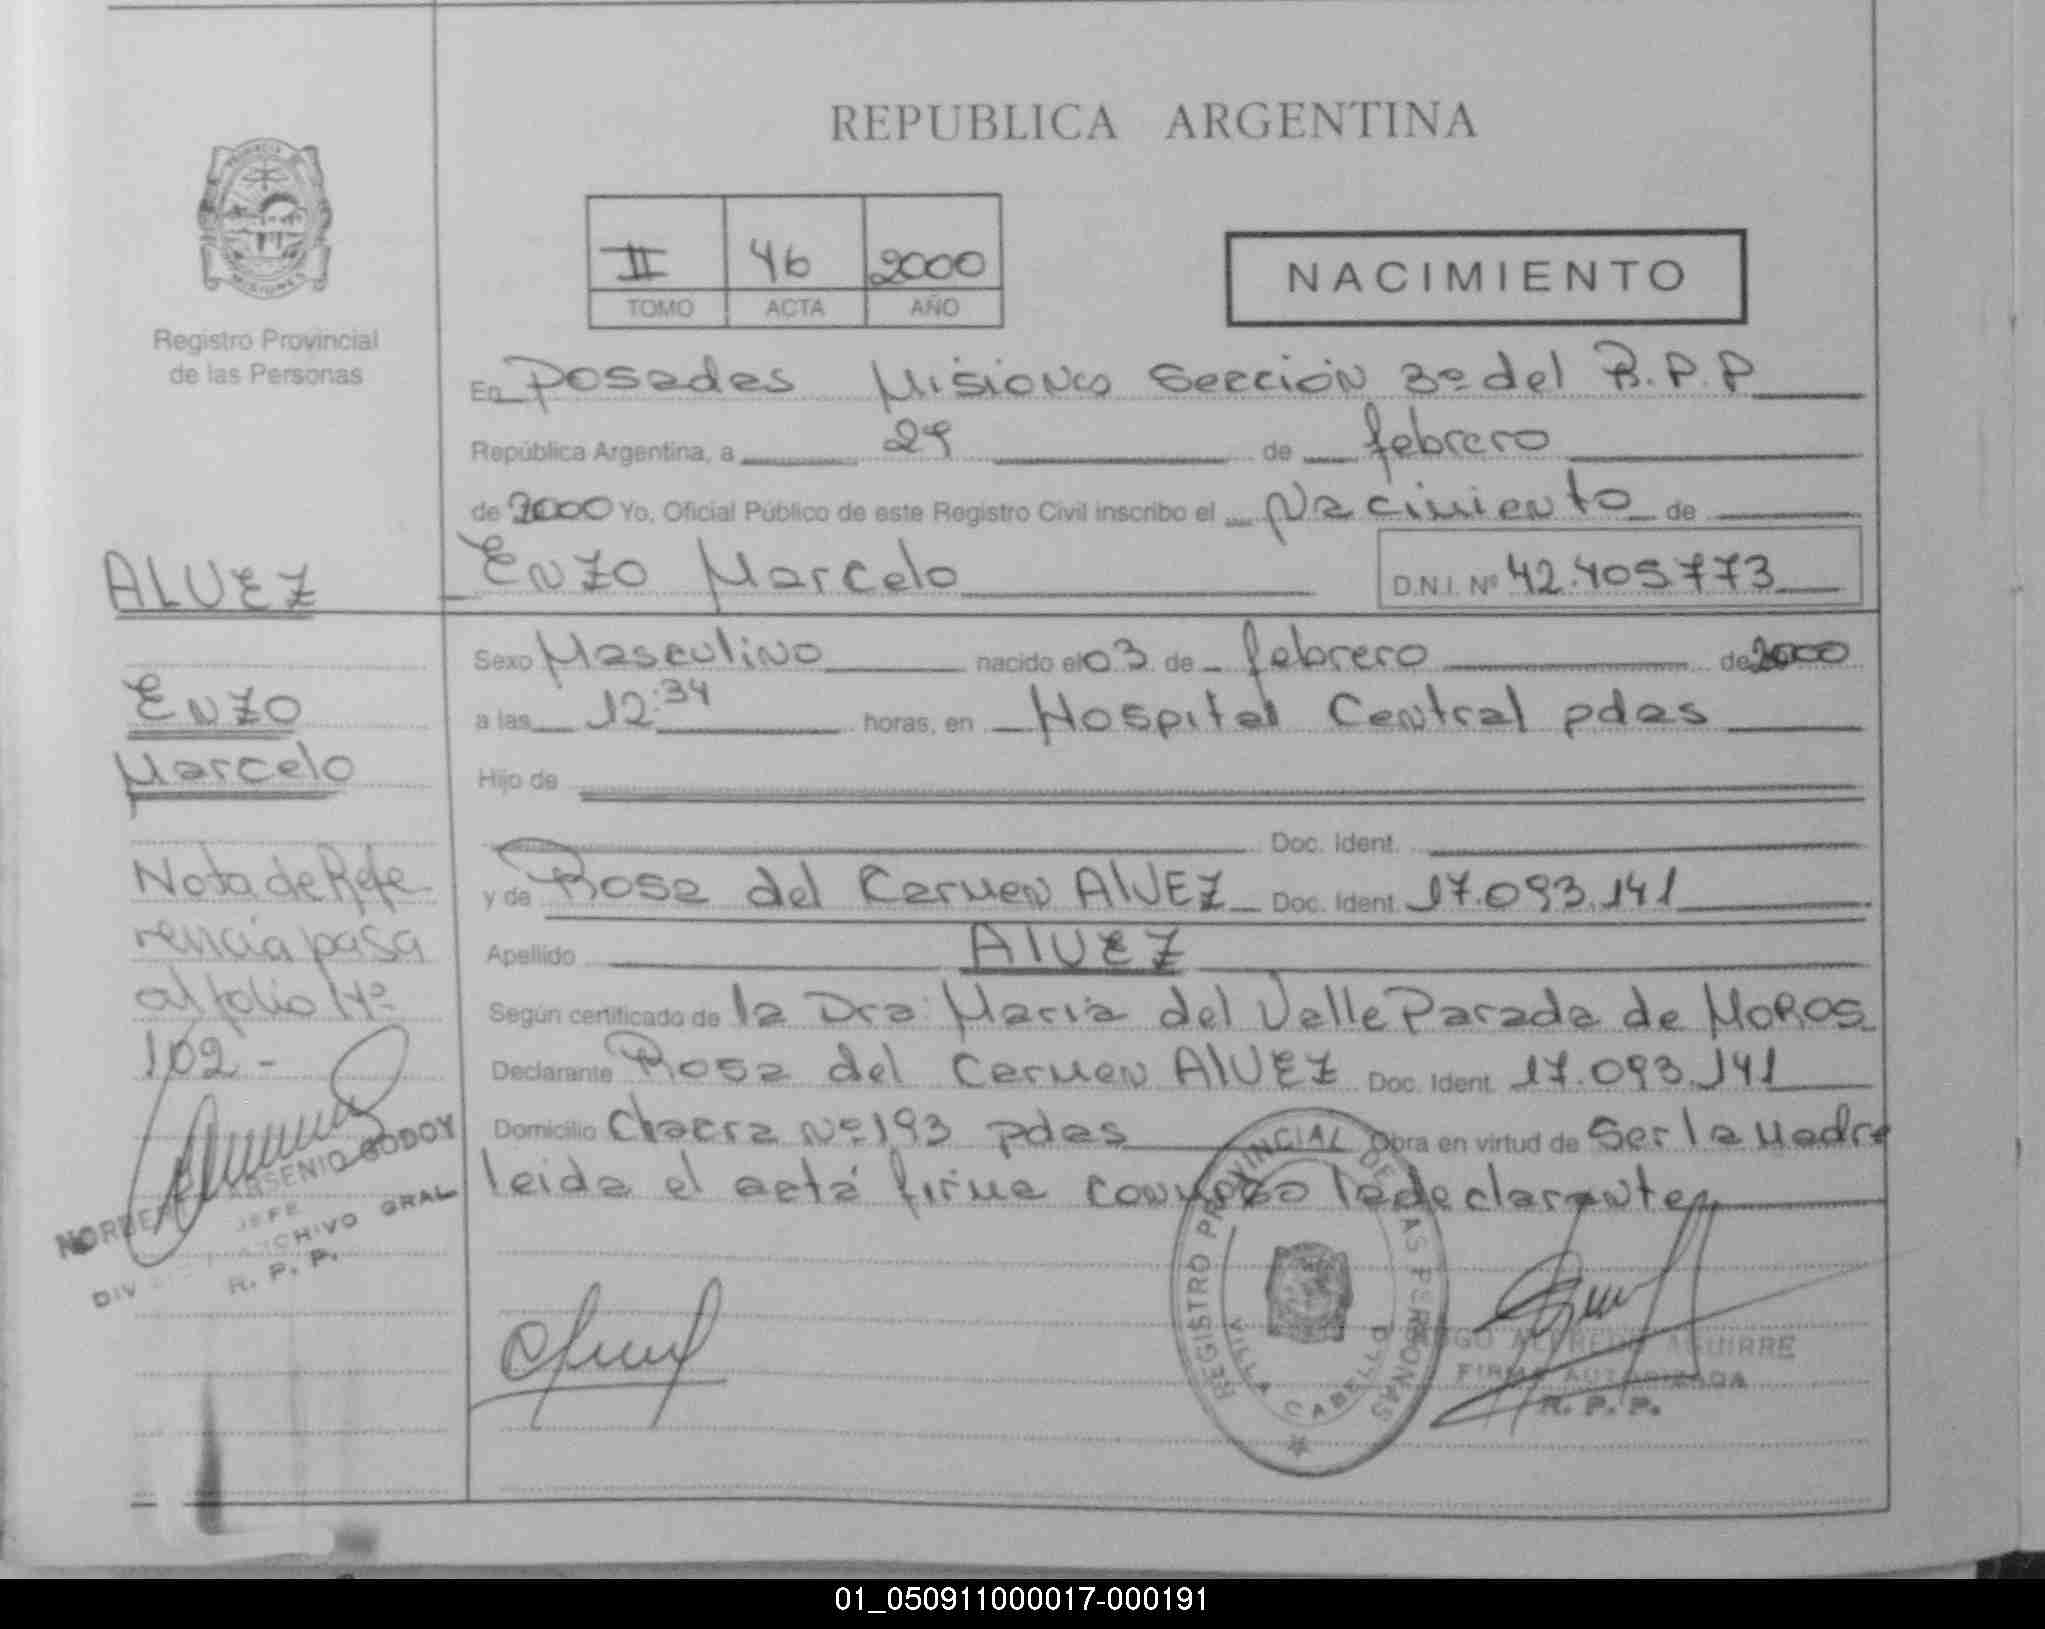 REPUBLICA ARGENTINA
PROVINCIA DE
MISIONES
Registro Provincial
de las Personas
II 46 2000
TOMO ACTA AÑO
NACIMIENTO
En Posadas Misiones Sección 3º del R.P.P
República Argentina, a 29 de febrero
de 2000 Yo, Oficial Público de este Registro Civil inscribo el Nacimiento de
Enzo Marcelo D.N.I. Nº 42.405773
ALVEZ
Enzo
Marcelo
Sexo Masculino nacido el 03 de febrero de 2000
a las 12:34 horas, en Hospital Central pdas
Hijo de
Doc. Ident.
y de Rosa del Carmen AlVEZ Doc. Ident. 17.093.141
Apellido AlVEZ
Según certificado de la Dra: Maria del Valle Parada de MoROS
Declarante Rosa del Carmen AlVEZ Doc. Ident. 17.093.141
Domicilio Chacra Nº 193 pdas Obra en virtud de Ser la Madre
leida el acta firma conmigo la declarante
Nota de Refe
rencia pasa
al folio Nº
102 -
ARSENIO GODOY
JEFE
ARCHIVO GRAL
DIV
R. P. P.
REGISTRO PROVINCIAL DE LAS PERSONAS
VILLA CABELLO
HUGO ALFREDO AGUIRRE
FIRMA AUTORIZADA
R. P. P.
01_050911000017-000191